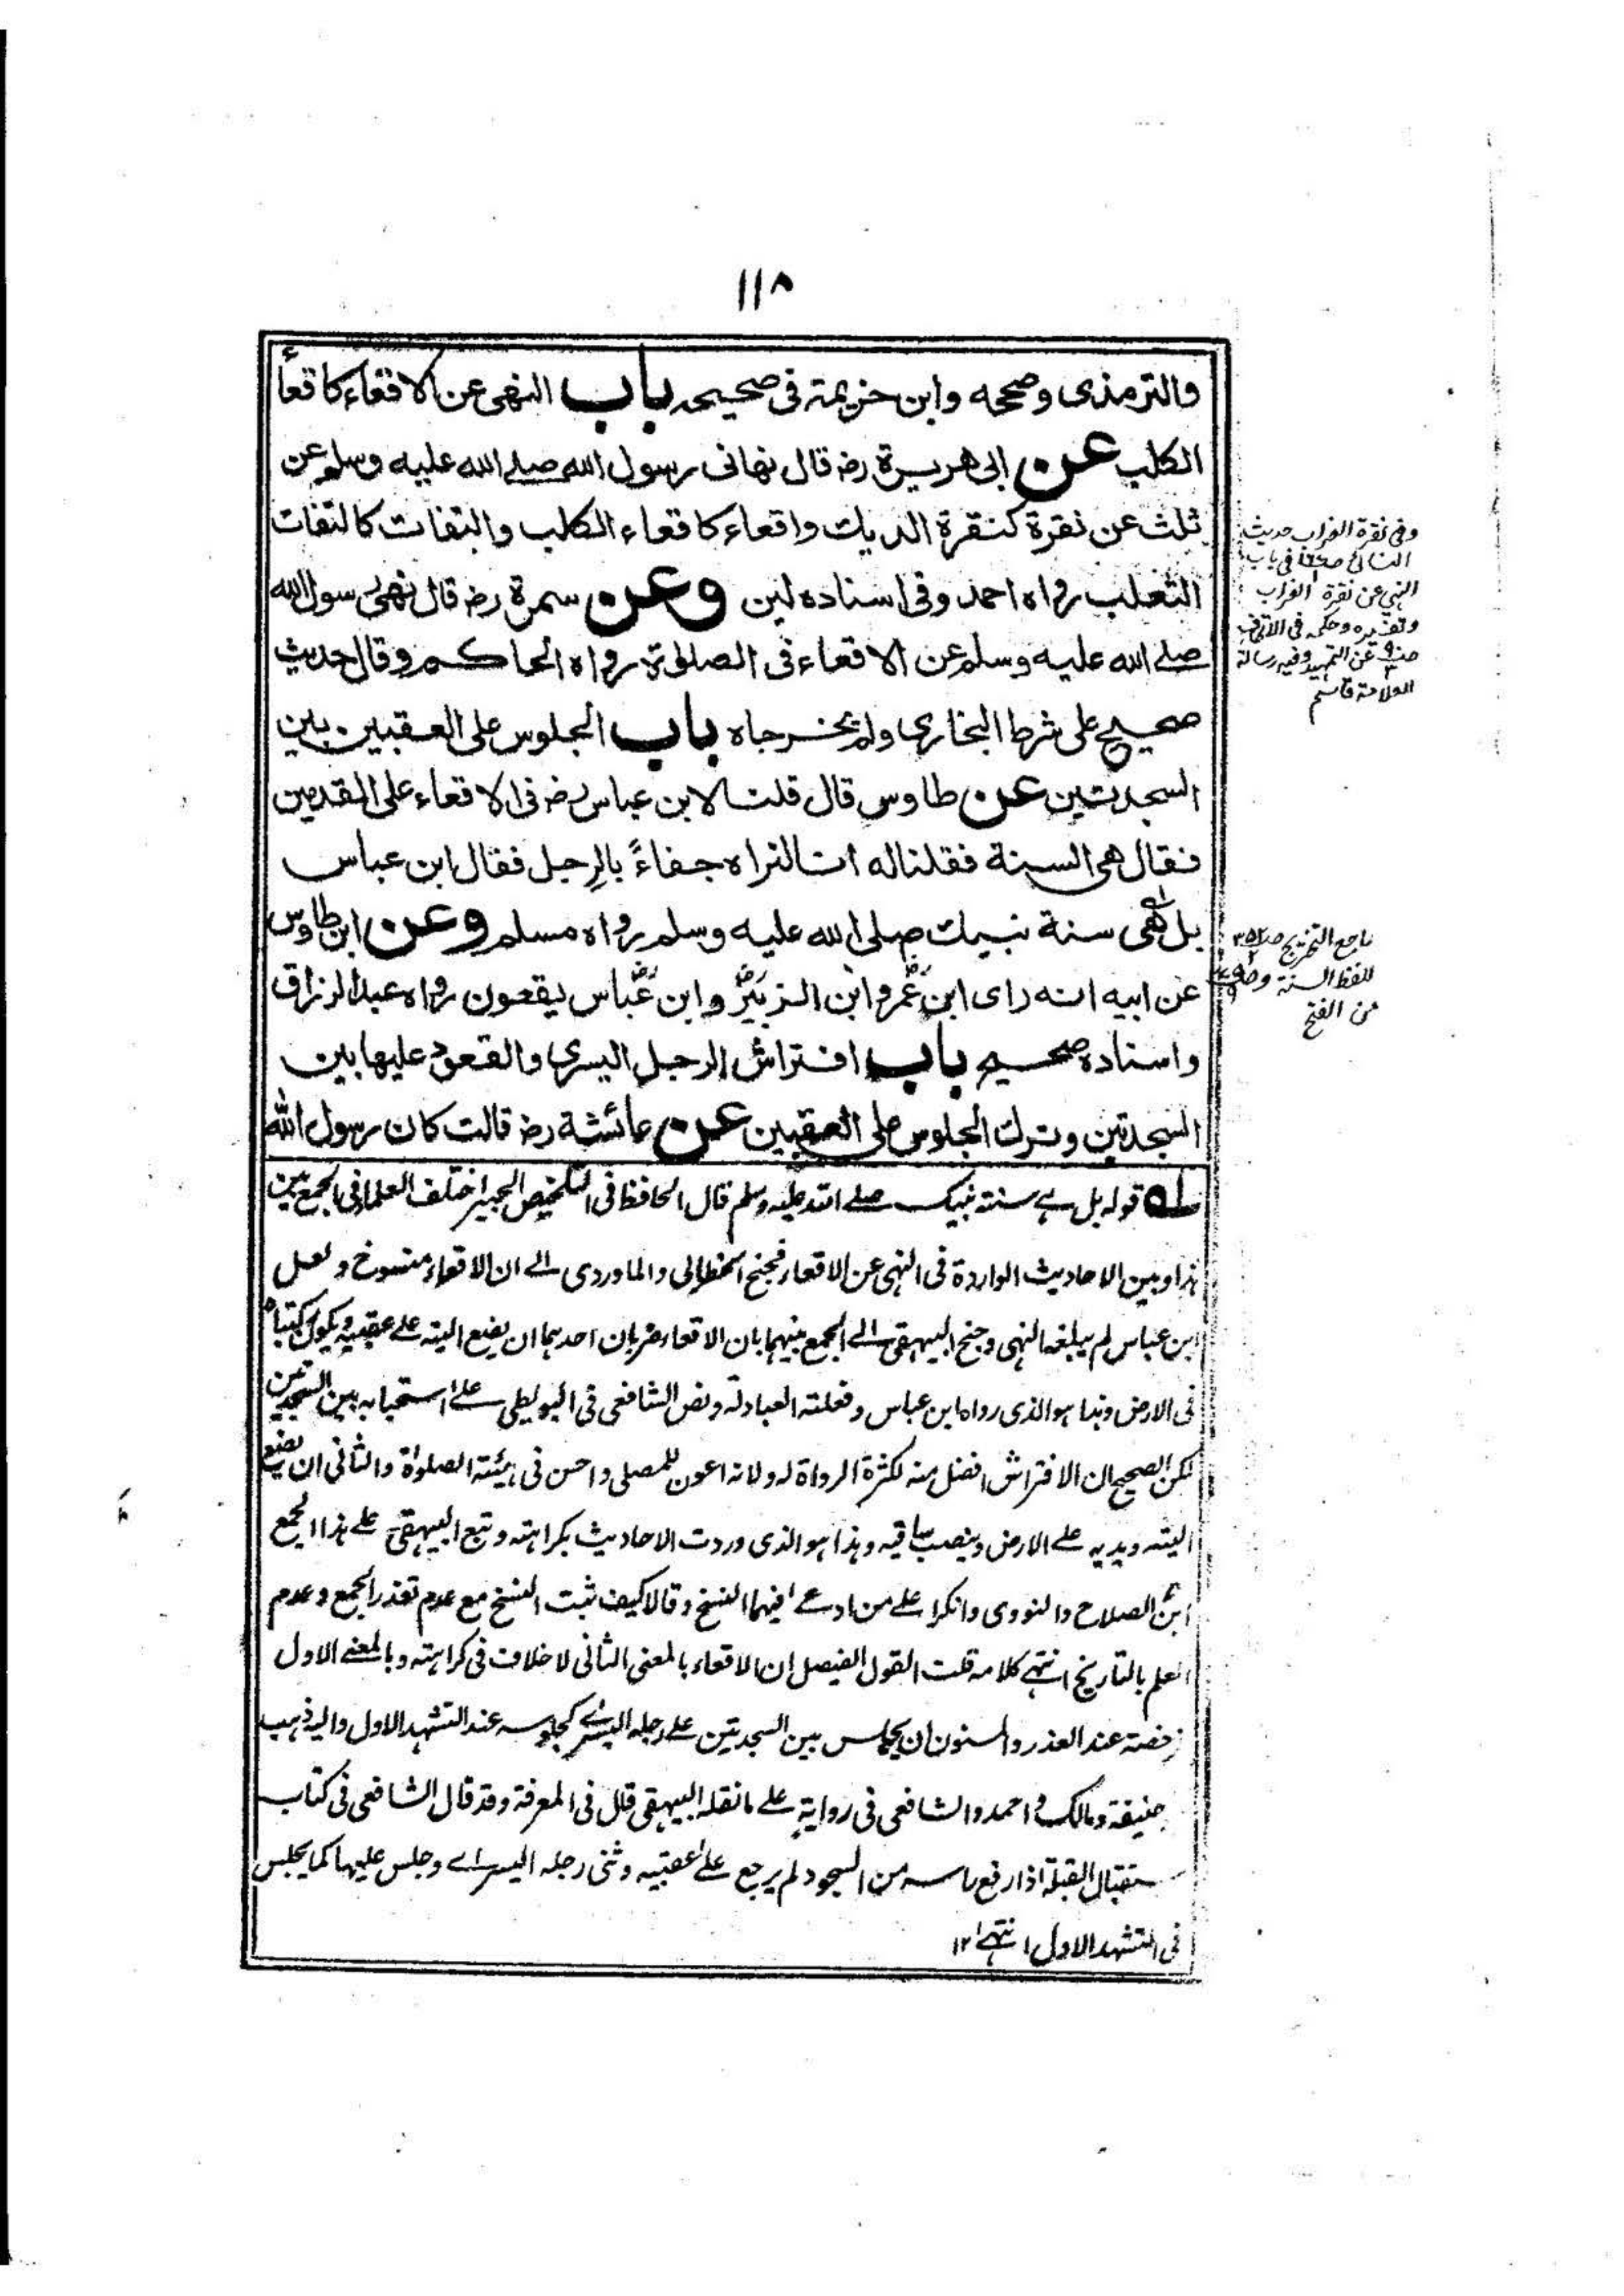 ١١٨
والترمذى وصححه وابن خزيمة فى صحيحه باب النهى عن الاقعاء كاقعاء
الكلب عن ابى هريرة رضـ قال نهانى رسول الله صلے الله عليه وسلم عن
ثلث عن نقرة كنقرة الديك واقعاء كاقعاء الكلب والتفات كالتفات
الثعلب رواه احمد وفى اسناده لين وعن سمرة رضـ قال نهى رسول الله
صلے الله عليه وسلم عن الاقعاء فى الصلوة رواه الحاكم وقال حديث
صحيح على شرط البخارى ولم يخرجاه باب الجلوس على العقبين بين
السجدتين عن طاوس قال قلت لابن عباس رضـ فى الاقعاء على القدمين
فقال هى السنة فقلنا له انا لنراه جفاءً بالرِجل فقال ابن عباس
بل هى سنة نبيك صلى الله عليه وسلم رواه مسلم وعن ابن طاوس
عن ابيه انه راى ابن عمر وابن الزبير وابن عباس يقعون رواه عبد الرزاق
واسناده صحيح باب افتراش الرجل اليسرى والقعود عليها بين
السجدتين وترك الجلوس على العقبين عن عائشة رضـ قالت كان رسول الله
وفى نقرة الغراب حديث
النسائى فى باب
النهى عن نقرة الغراب
عن التمهيد وفيه رسالة
العلامة قاسم
راجع التخريج
للفظ السنة
من الفتح
له قوله بل هے سنة نبيك صلے الله عليه وسلم قال الحافظ فى التلخيص الحبير اختلف العلما فى الجمع بين
هذا وبين الاحاديث الواردة فى النهى عن الاقعاء فجنح الخطابى والماوردى الے ان الاقعاء منسوخ ولعل
ابن عباس لم يبلغه النهى وجنح البيهقى الے الجمع بينهما بان الاقعاء ضربان احدهما ان يضع اليته علے عقبيه ويكون ركبتاه
فى الارض وهذا هو الذى رواه ابن عباس وفعلته العبادلة ونص الشافعى فى البويطى علے استحبابه بين السجدتين
لكن الصحيح ان الافتراش افضل منه لكثرة الرواة له ولانه اعون للمصلى واحسن فى هيئته الصلواة والثانى ان يضع
اليته ويديه علے الارض وينصب ساقيه وهذا هو الذى وردت الاحاديث بكراهته وتبع البيهقى علے هذا الجمع
ابن الصلاح والنووى وانكرا علے من ادعے فيهما النسخ وقالا كيف ثبت النسخ مع عدم تعذر الجمع وعدم
العلم بالتاريخ انتهے كلامه قلت القول الفيصل ان الاقعاء بالمعنى الثانى لا خلاف فى كراهته وبالمعنے الاول
رخصة عند العذر والمسنون ان يجلس بين السجدتين علے رجله اليسرے كجلوسه عند التشهد الاول واليه ذهب
حنيفة ومالك واحمد والشافعى فى رواية علے ما نقله البيهقى قال فى المعرفة وقد قال الشافعى فى كتاب
ستقبال القبلة اذا رفع راسه من السجود لم يرجع علے عقبيه وثنى رجله اليسراے وجلس عليها كما يجلس
فى التشهد الاول انتهے ١٢